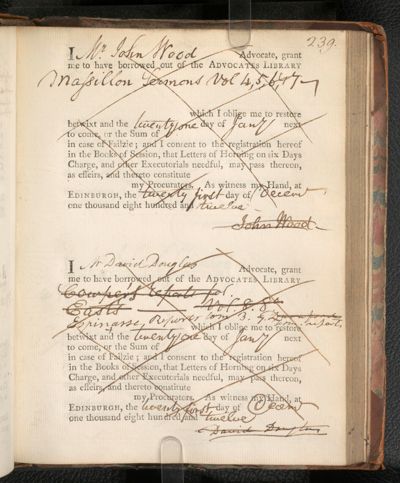 239.
I Mr John Wood Advocate, grant
me to have borrowed out of the ADVOCATES LIBRARY
Massillon Sermons Vol 4, 5, 6, & 7
which I oblige me to restore
betwixt and the twenty one day of Jany next
to come, or the Sum of
in case of Failzie; and I consent to the registration hereof
in the Books of Session, that Letters of Horning on six Days
Charge, and other Executorials needful, may pass thereon,
as effeirs, and thereto constitute
my Procurators. As witness my Hand, at
EDINBURGH, the twenty first day of Decem
one thousand eight hundred and twelve
John Wood
I Mr David Douglas Advocate, grant
me to have borrowed out of the ADVOCATES LIBRARY
Cowpers reports
Easts
Espinasse, Reports tom 3.
which I oblige me to restore
betwixt and the twenty one day of Jany next
to come, or the Sum of
in case of Failzie; and I consent to the registration hereof
in the Books of Session, that Letters of Horning on six Days
Charge, and other Executorials needful, may pass thereon,
as effeirs, and thereto constitute
my Procurators. As witness my Hand, at
EDINBURGH, the twenty first day of Decem
one thousand eight hundred and twelve
David Douglas